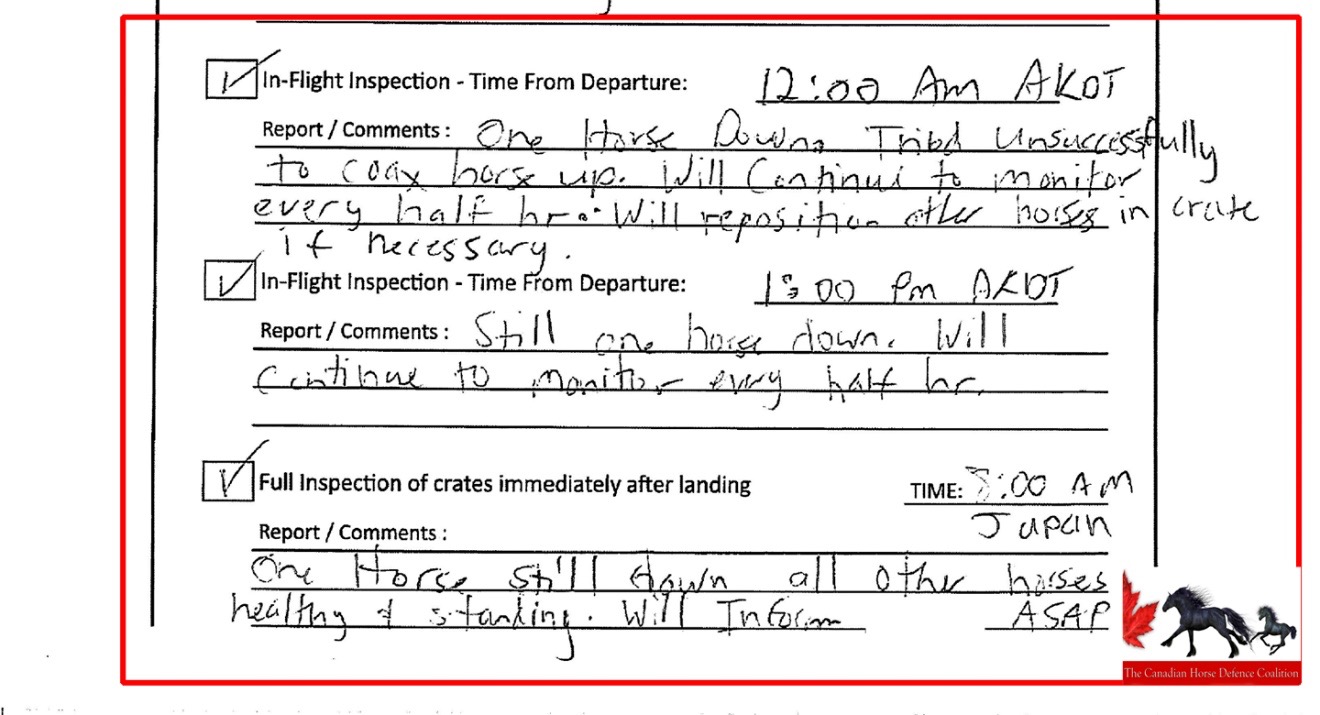 In-Flight Inspection - Time From Departure: 12:00 Am AKDT
Report / Comments : One Horse Down. Tried Unsuccessfully
to coax horse up. Will Continue to monitor
every half hr. Will reposition other horses in crate
if necessary.
In-Flight Inspection - Time From Departure: 1:00 Pm AKDT
Report / Comments : Still one horse down. Will
Continue to monitor every half hr.
Full Inspection of crates immediately after landing TIME: :00 AM
Japan
Report / Comments :
One Horse still down all other horses
healthy & standing. Will Inform ASAP
The Canadian Horse Defence Coalition